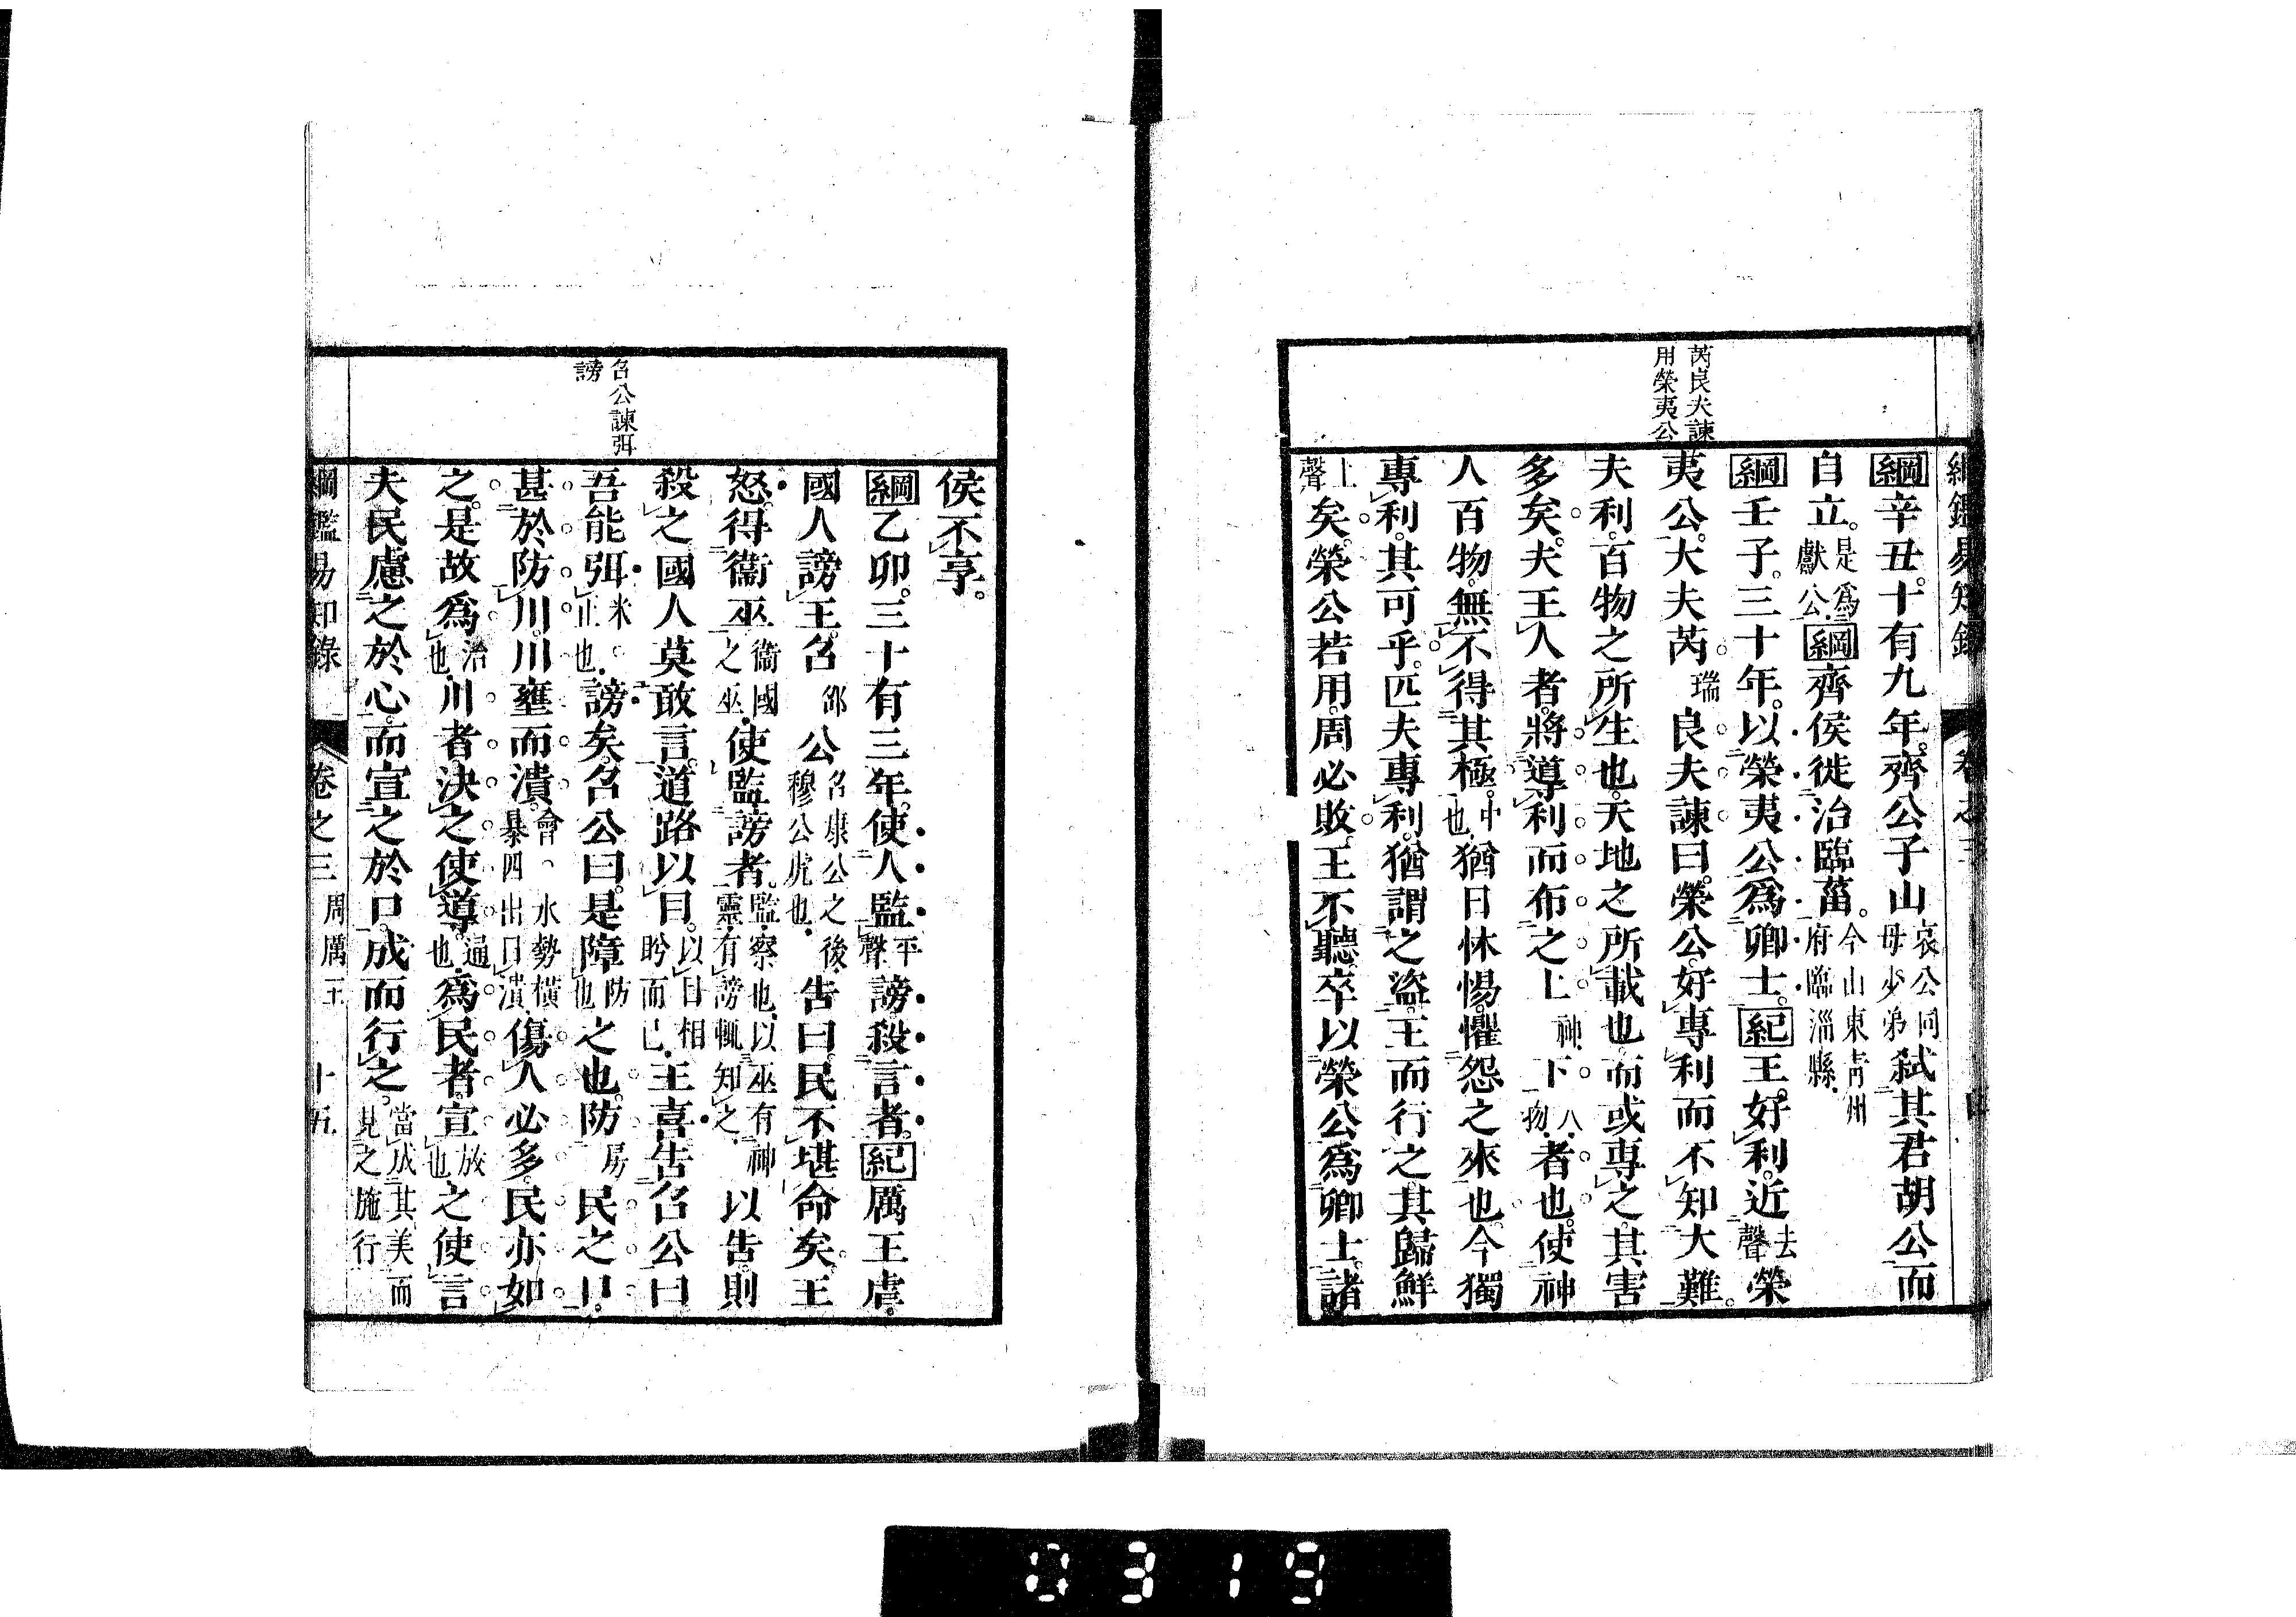 綱鑑易知錄 卷之三
芮良夫諫
用榮夷公
綱辛丑。十有九年。齊公子山哀公同母少弟弒其君胡公而
自立。是爲獻公。綱齊侯徙治臨菑。今山東靑州府臨淄縣。
綱壬子。三十年。以榮夷公爲卿士。紀王好利。近去聲榮
夷公。大夫芮瑞良夫諫曰。榮公好專利而不知大難。
夫利。百物之所生也。天地之所載也。而或專之。其害
多矣。夫王人者。將導利而布之上神下人物者也。使神
人百物。無不得其極。中也猶日怵惕。懼怨之來也。今獨
專利。其可乎。匹夫專利。猶謂之盜。王而行之。其歸鮮
上聲矣。榮公若用。周必敗。王不聽。卒以榮公爲卿士。諸
侯不享。
綱乙卯。三十有三年。使人監平聲謗。殺言者。紀厲王虐。
國人謗王。召邵公召康公之後。穆公虎也。告曰。民不堪命矣。王
怒。得衞巫衞國之巫。使監謗者。監。察也。以巫有神靈。有謗輒知之。以告。則
殺之。國人莫敢言。道路以目。以目相眄而已。王喜。告召公曰。
吾能弭米。止也。謗矣。召公曰。是障防也之也。防房民之口。
甚於防川。川壅而潰。會。水勢橫暴四出曰潰。傷人必多。民亦如
之。是故爲治也川者。決之使導。通也。爲民者。宣放也之使言
夫民慮之於心。而宣之於口。成而行之。當成其美而見之施行
召公諫弭
謗
綱鑑易知錄 卷之三 周厲王 十五
0319